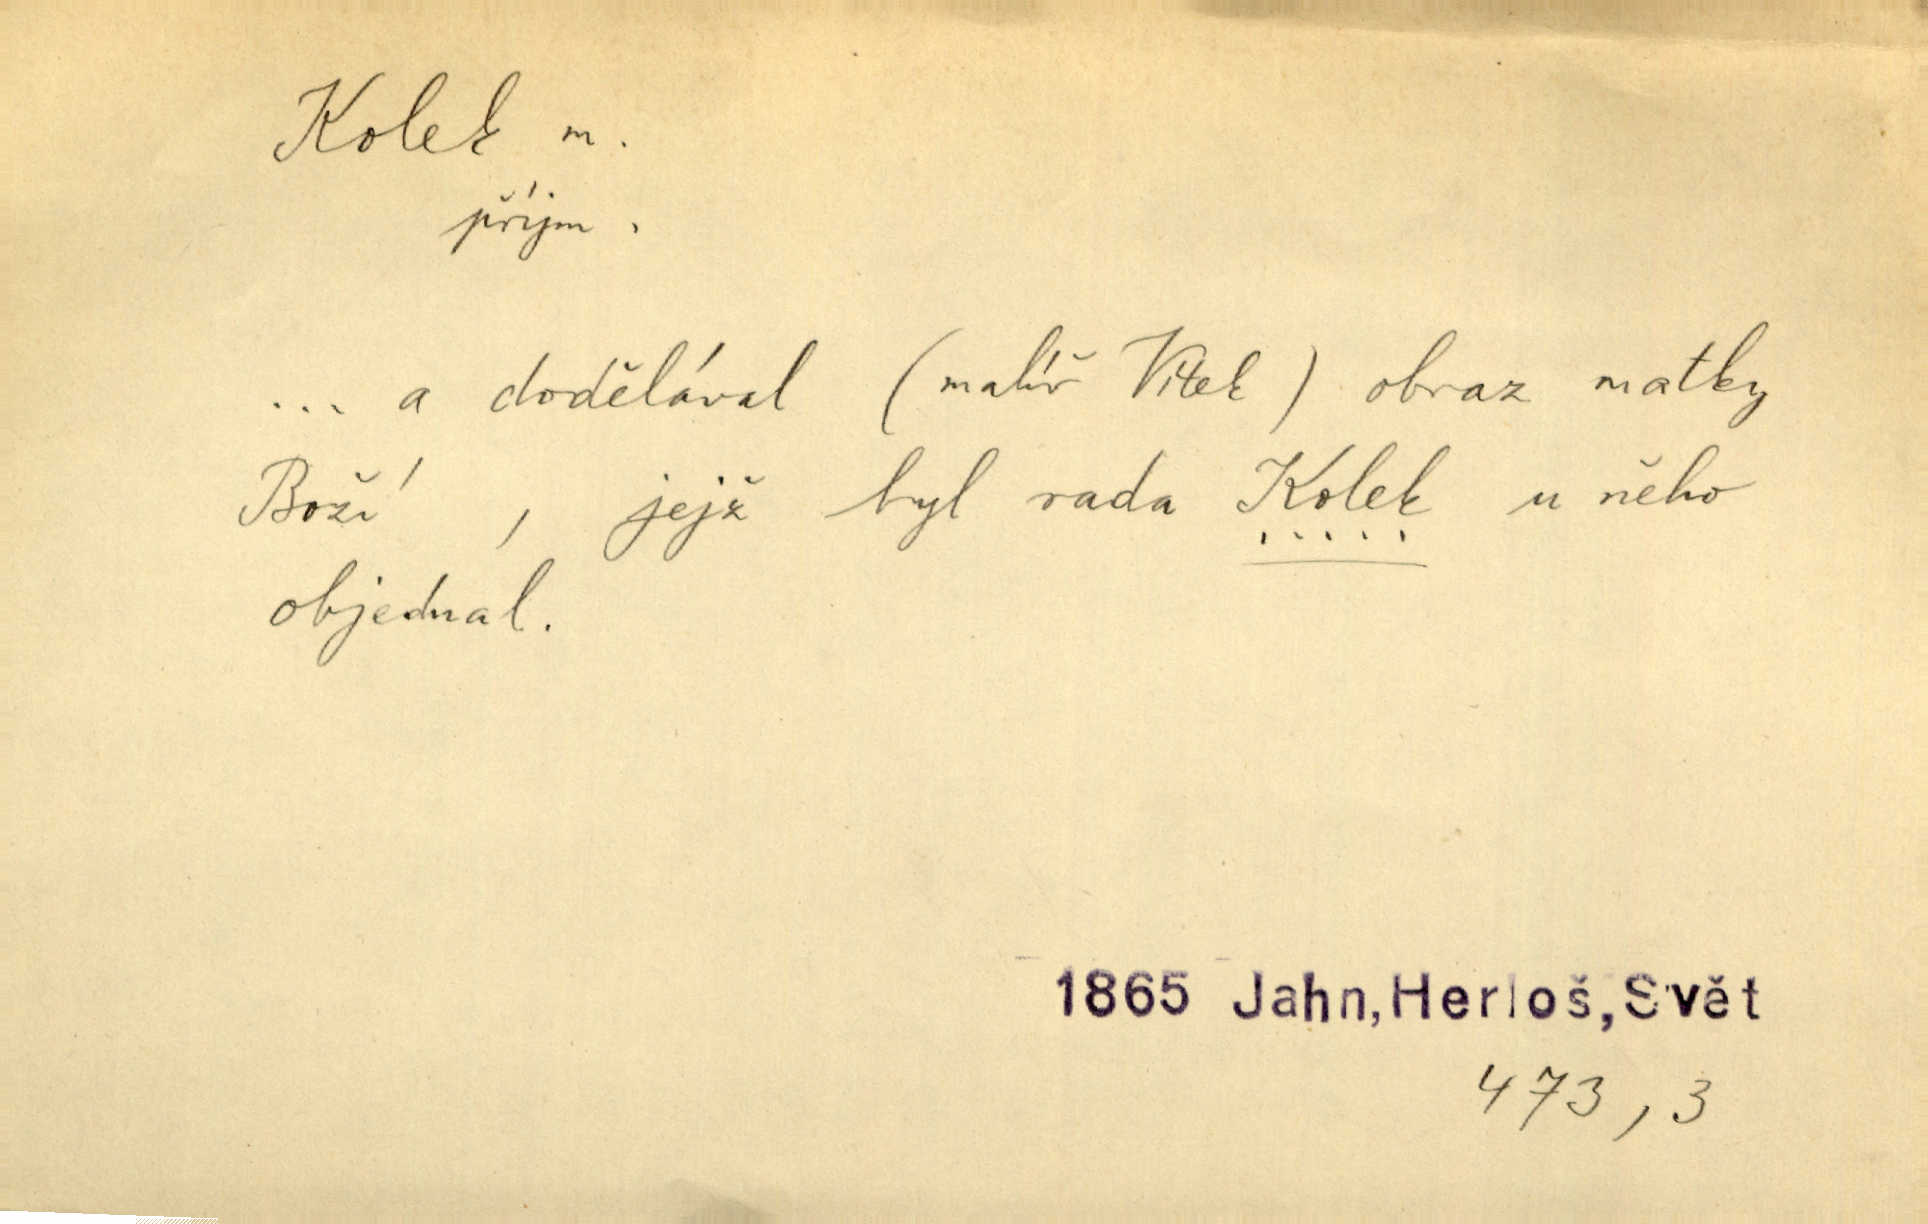 Kolek m.
příjm.
... a dodělával (malíř Vítek) obraz matky
Boží, jejž byl rada Kolek u něho
objednal.
1865 Jahn, Herloš, Svět
473, 3